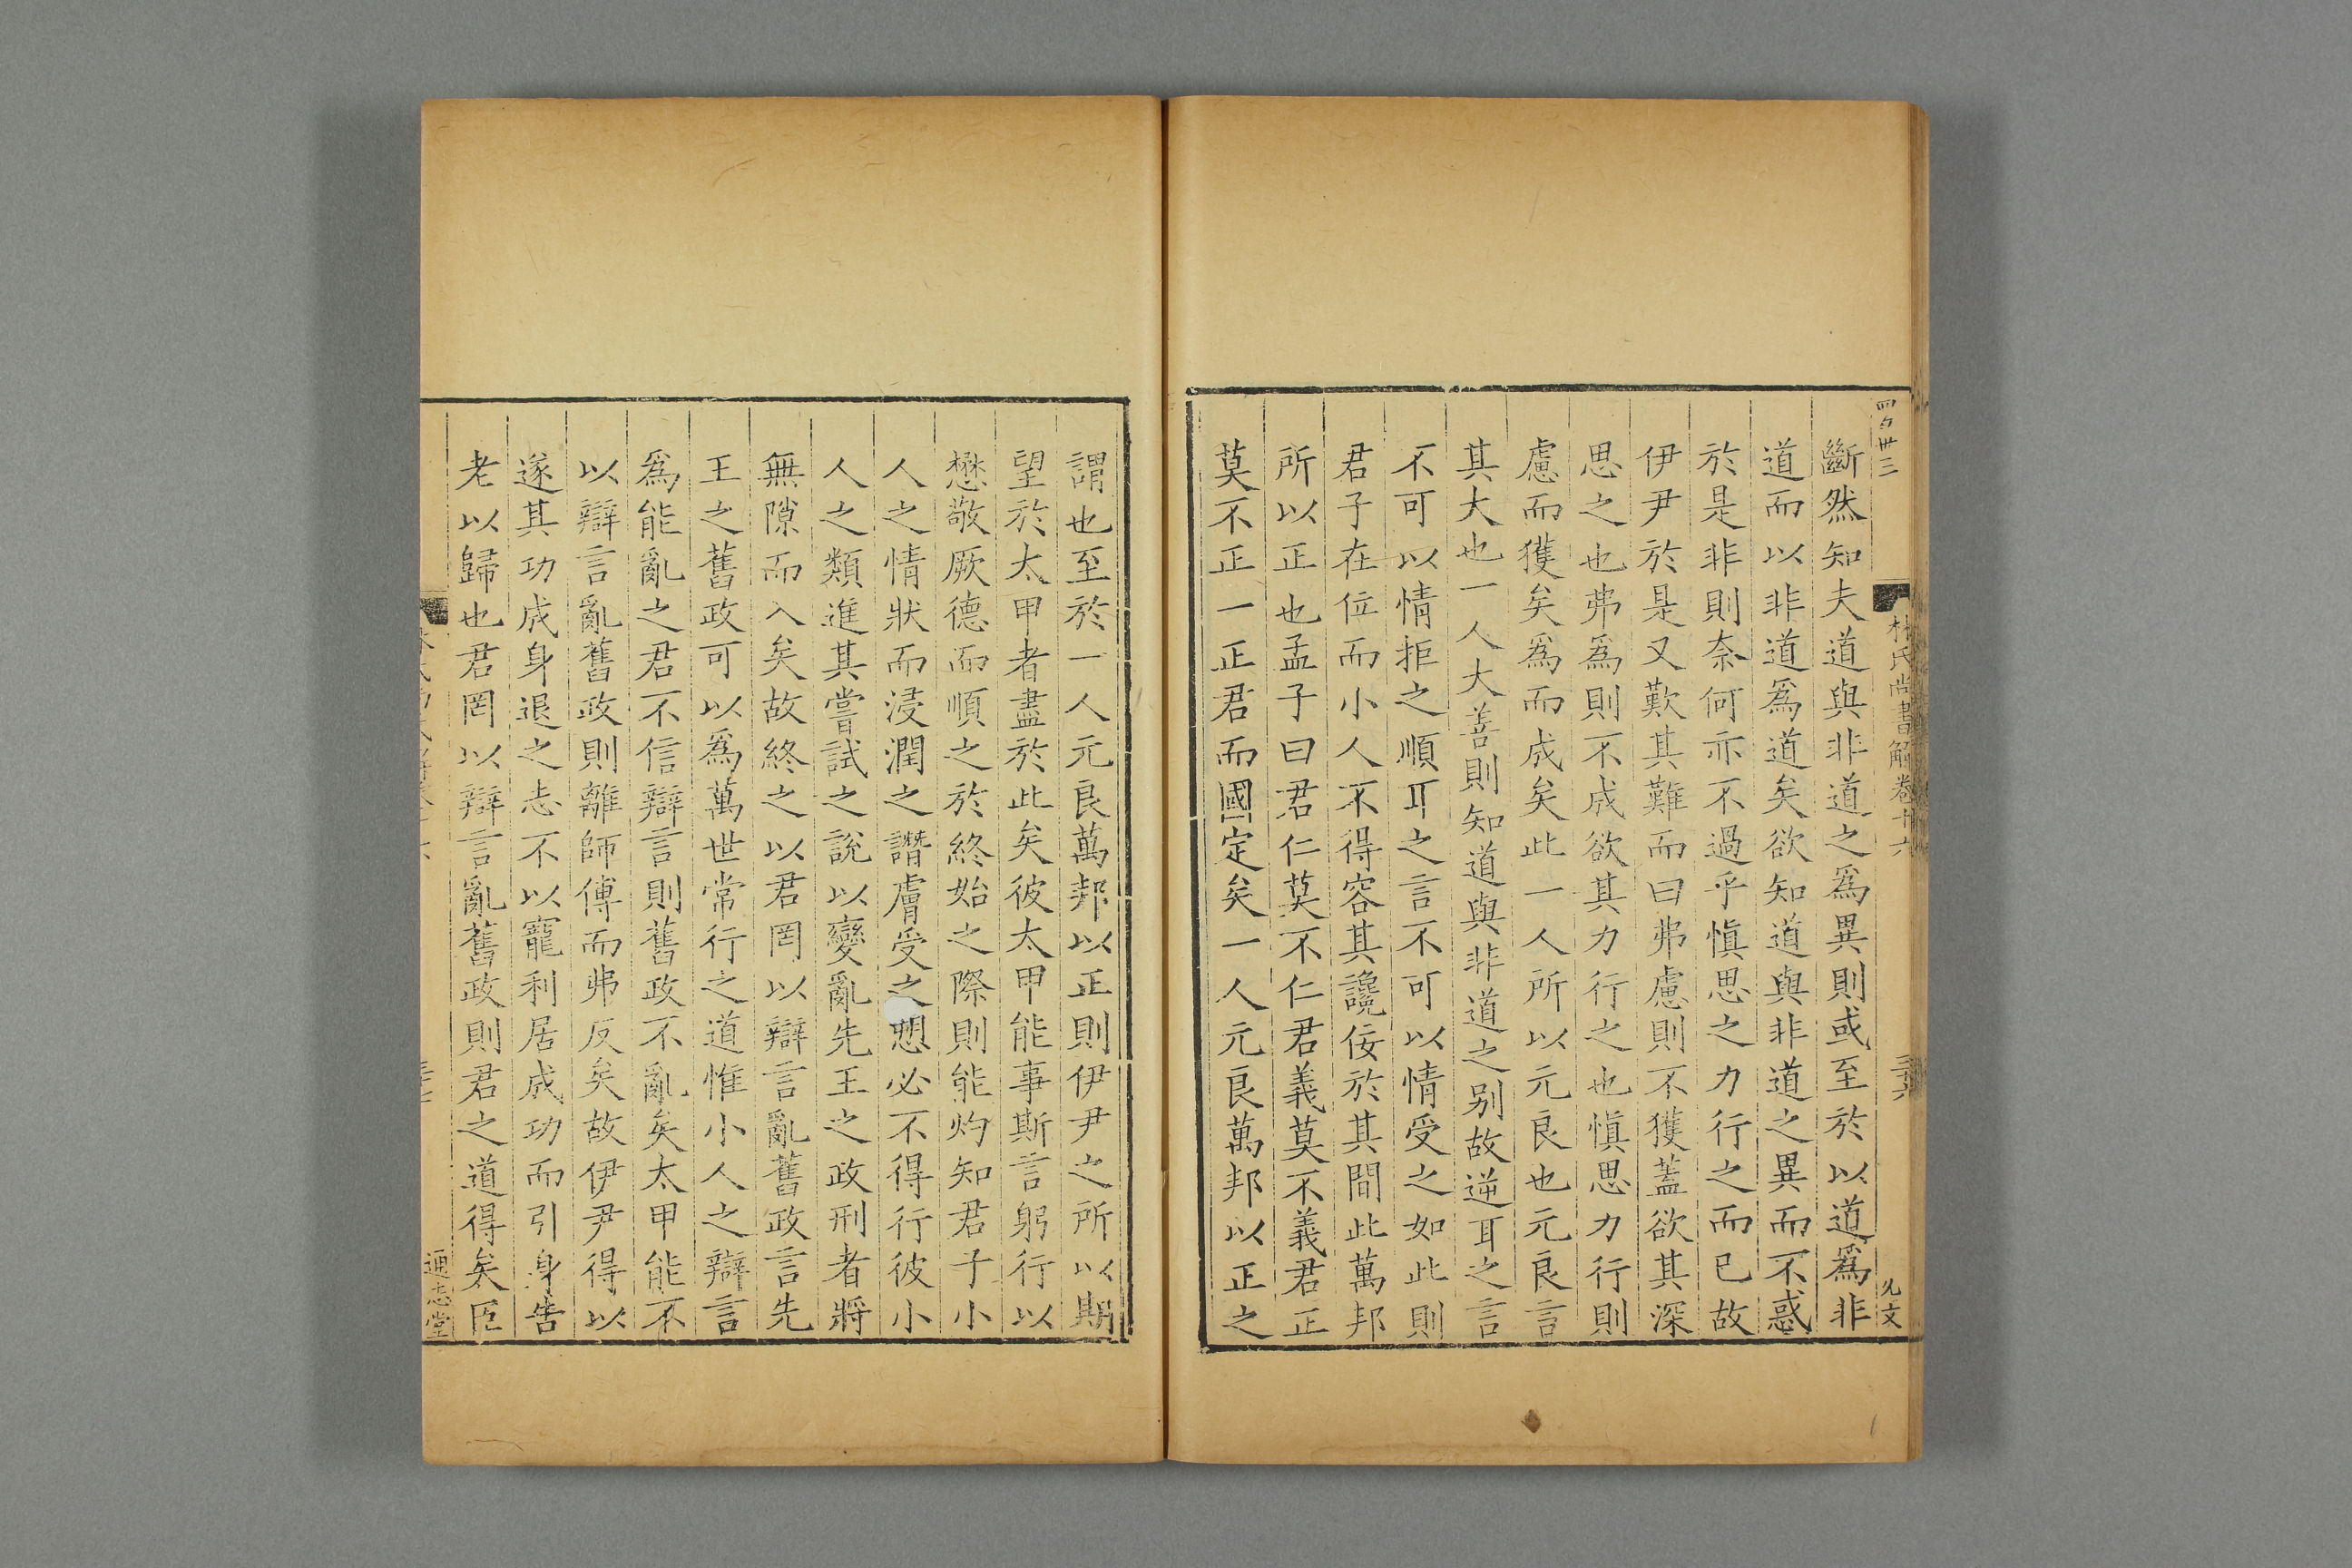 四百卅三
林氏尚書解卷十六
三十六
斷然知夫道與非道之爲異則或至於以道爲非
道而以非道爲道矣欲知道與非道之異而不惑
於是非則奈何亦不過乎愼思之力行之而已故
伊尹於是又歎其難而曰弗慮則不獲蓋欲其深
思之也弗爲則不成欲其力行之也愼思力行則
慮而獲矣爲而成矣此一人所以元良也元良言
其大也一人大善則知道與非道之别故逆耳之言
不可以情拒之順耳之言不可以情受之如此則
君子在位而小人不得容其讒佞於其間此萬邦
所以正也孟子曰君仁莫不仁君義莫不義君正
莫不正一正君而國定矣一人元良萬邦以正之
謂也至於一人元良萬邦以正則伊尹之所以期
望於太甲者盡於此矣彼太甲能事斯言躬行以
懋敬厥德而順之於終始之際則能灼知君子小
人之情狀而浸潤之譖膚受之愬必不得行彼小
人之類進其嘗試之說以變亂先王之政刑者將
無隙而入矣故終之以君罔以辯言亂舊政言先
王之舊政可以爲萬世常行之道惟小人之辯言
爲能亂之君不信辯言則舊政不亂矣太甲能不
以辯言亂舊政則離師傅而弗反矣故伊尹得以
遂其功成身退之志不以寵利居成功而引身告
老以歸也君罔以辯言亂舊政則君之道得矣臣
通志堂